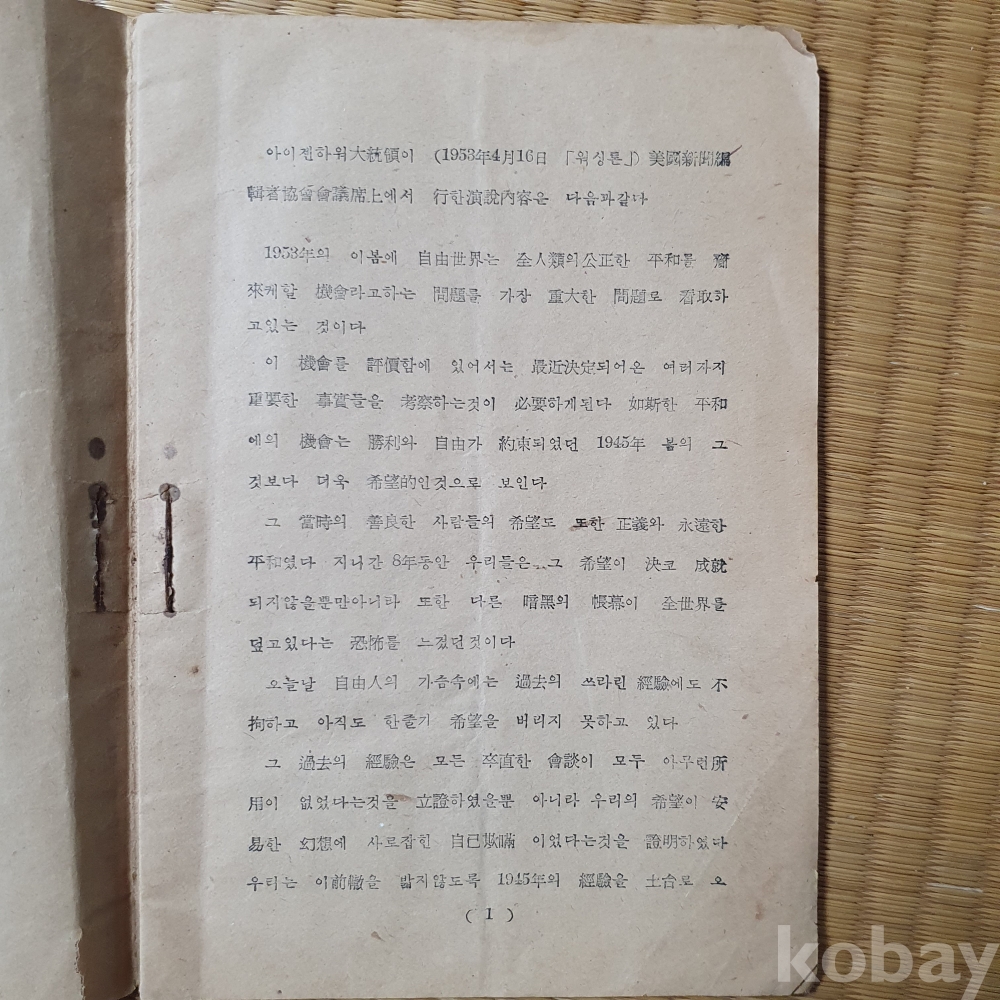 아이젠하워大統領이 (1953年4月16日 「워싱톤」) 美國新聞編
輯者協會會議席上에서 行한演說內容은 다음과같다
1953年의 이봄에 自由世界는 全人類의公正한 平和를 齎
來케할 機會라고하는 問題를 가장 重大한 問題로 看取하
고있는 것이다
이 機會를 評價함에 있어서는 最近決定되어온 여러가지
重要한 事實들을 考察하는것이 必要하게된다 如斯한 平和
에의 機會는 勝利와 自由가 約束되었던 1945年 봄의 그
것보다 더욱 希望的인것으로 보인다
그 當時의 善良한 사람들의希望도 또한 正義와 永遠한
平和였다 지나간 8年동안 우리들은 그 希望이 決코 成就
되지않을뿐만아니라 또한 다른 暗黑의 帳幕이 全世界를
덮고있다는 恐怖를 느꼈던것이다
오늘날 自由人의 가슴속에는 過去의 쓰라린 經驗에도 不
拘하고 아직도 한줄기 希望을 버리지 못하고 있다
그 過去의 經驗은 모든 卒直한 會談이 모두 아무런所
用이 없었다는것을 立證하였을뿐 아니라 우리의 希望이 安
易한 幻想에 사로잡힌 自己欺瞞 이었다는것을 證明하였다
우리는 이前轍을 밟지않도록 1945年의 經驗을 土台로 오
( 1 )
kobay